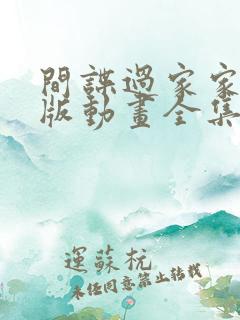 間諜過家家
版動畫全集
運蘇杬
未經同意禁止转载